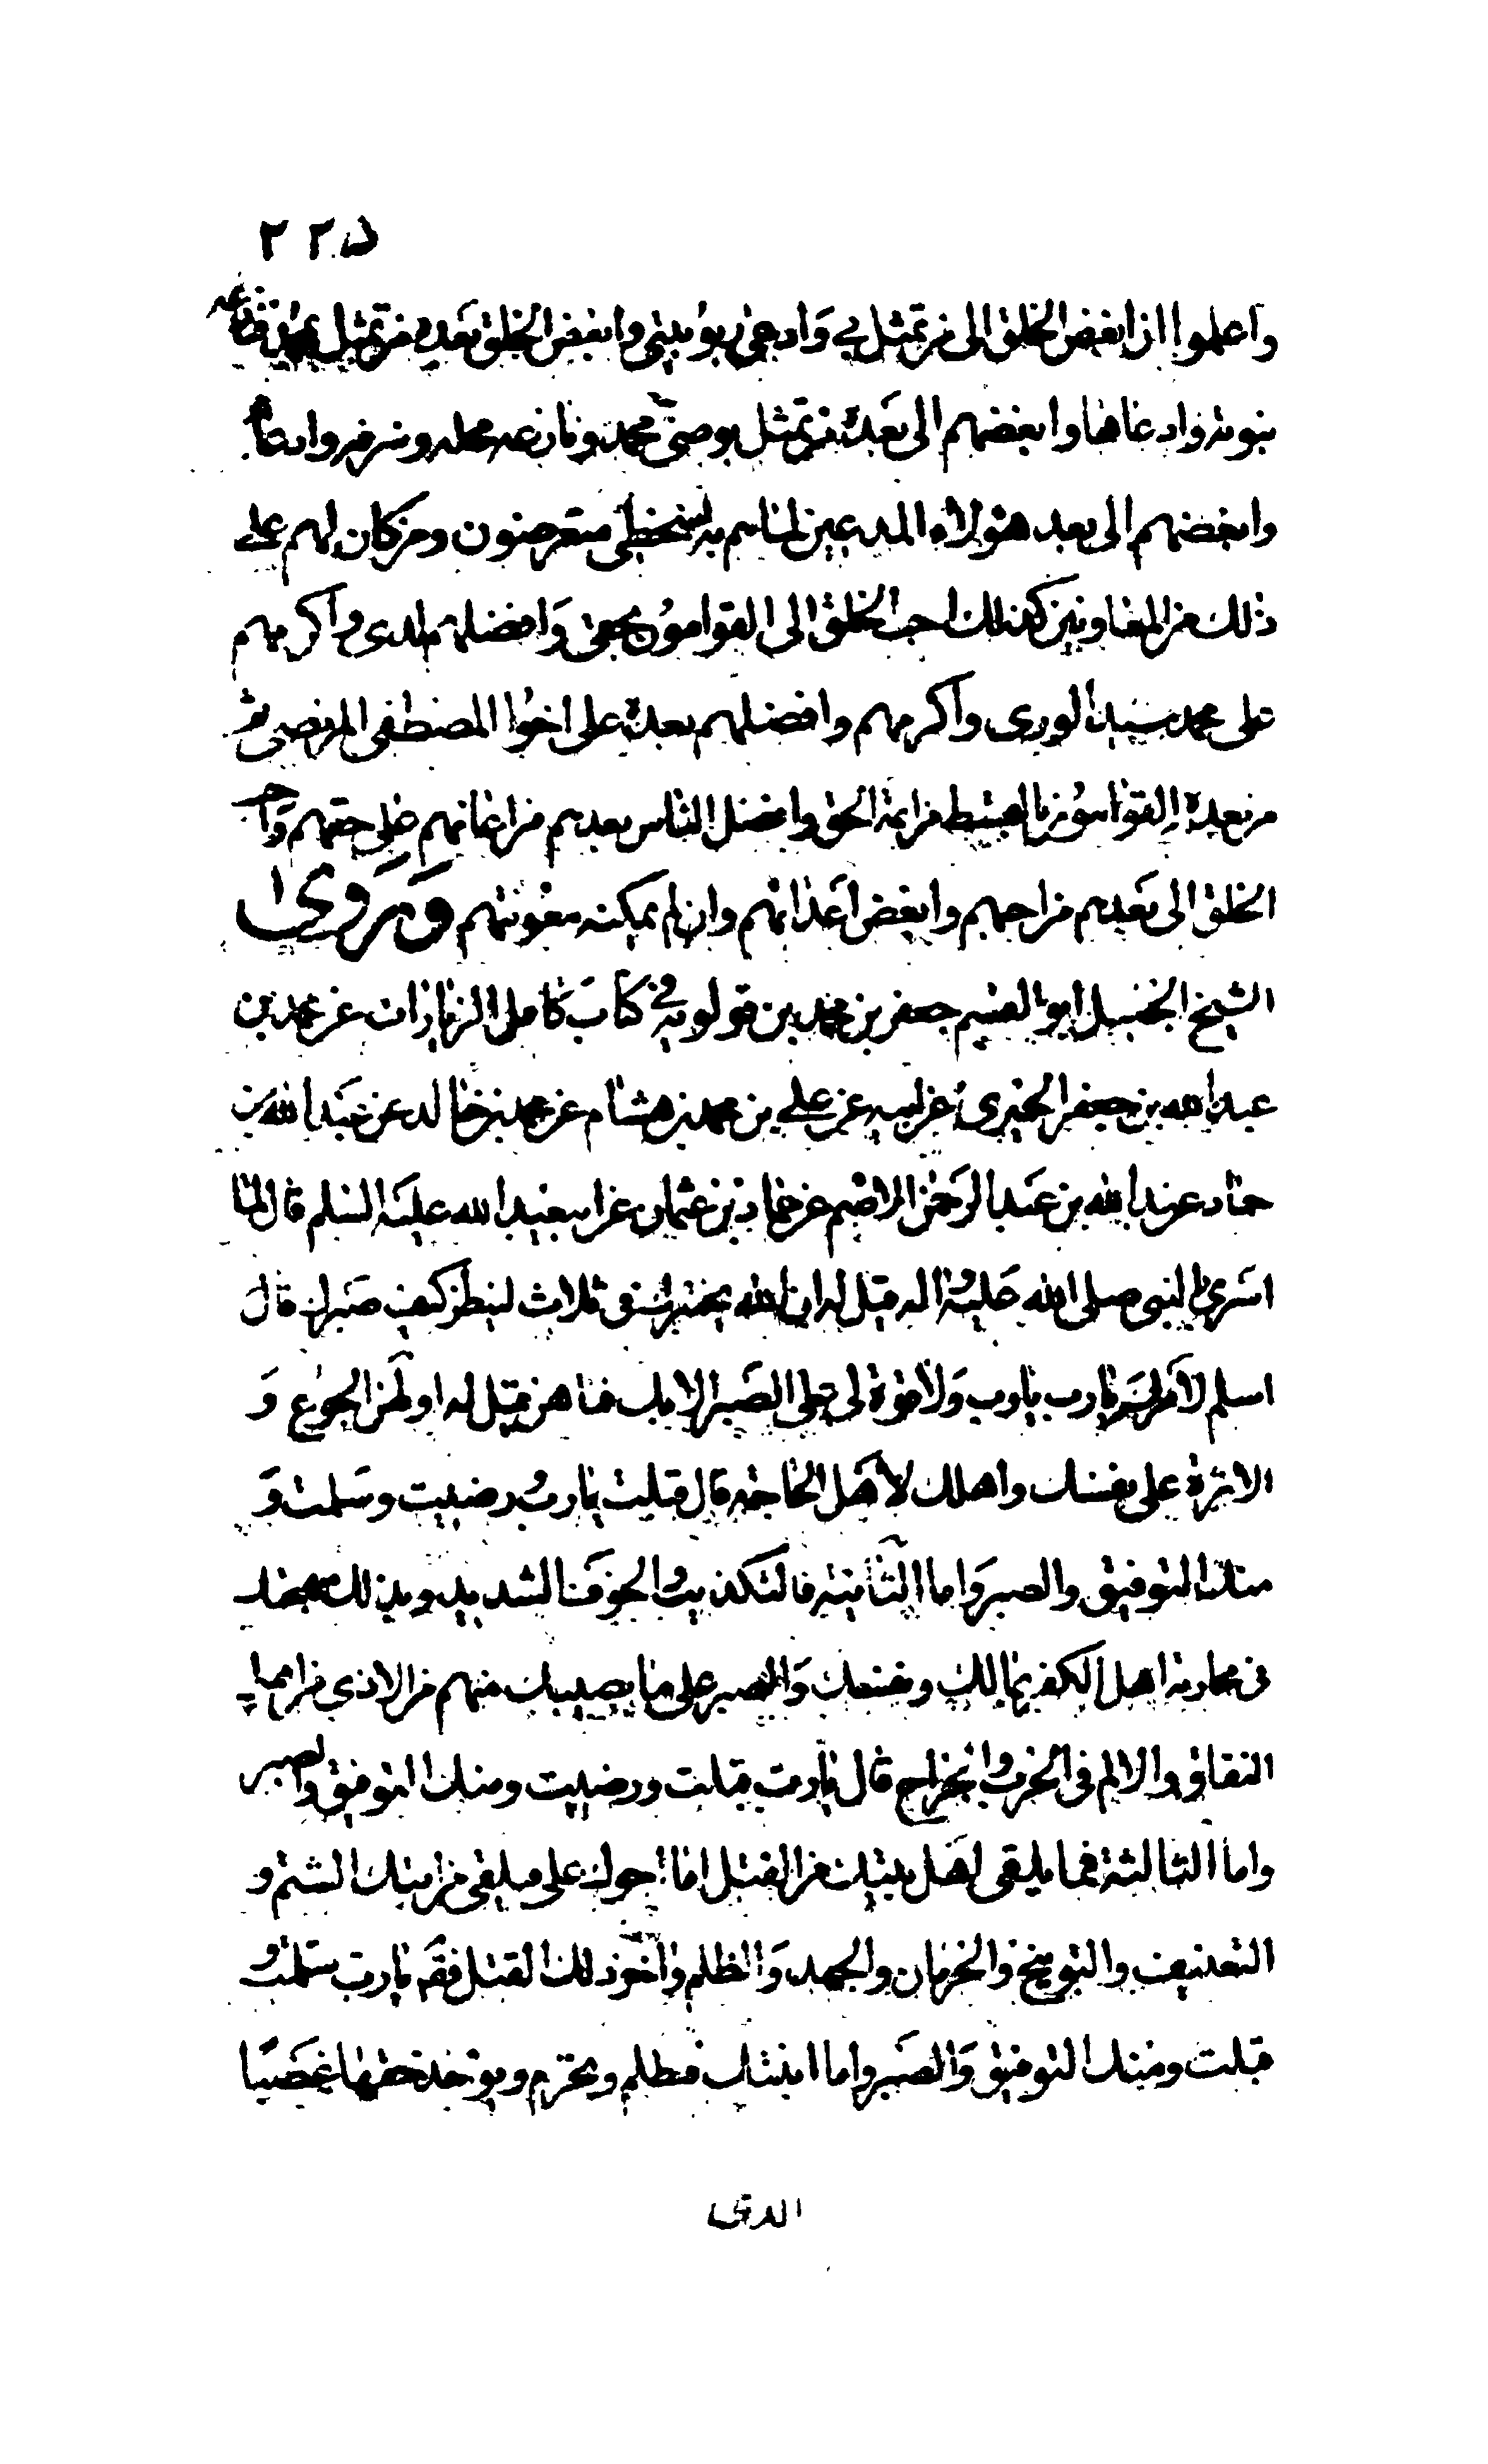 ٢٢٥
واعلموا ان ابغض الخلق الى من تمثل بي وادعى ربوبيتي وابغض الخلق بعده من تمثل بمحمد ونازعه
نبوته وادعاها وابغضهم الى بعده من تمثل بوصى محمد ونازعه محله وشرفه وادعاها
وابغضهم الى بعد هؤلاء المدعين لما هم به لسخطى متعرضون ومن كان لهم على
ذلك من المعاونين كذلك احب الخلق الى القوامون بحقى وافضلهم لدى واكرمهم
على محمد سيد الورى واكرمهم وافضلهم بعده على اخوا المصطفى المرتضى ثم
من بعده القوامون بالقسط من ائمة الحق وافضل الناس بعدهم من اعانهم على حقهم واحب
الخلق الى بعدهم من احبهم وابغض اعدائهم وان لم يمكنه معونتهم وروى
الشيخ الجليل ابو القسم جعفر بن محمد بن قولويه في كتاب كامل الزيارات عن محمد بن
عبد الله بن جعفر الحميرى عن ابيه عن على بن محمد بن هشام عن محمد بن خالد عن عبد الله بن
حماد عن عبد الله بن عبد الرحمن الاصم عن حماد بن عثمان عن ابيعبد الله عليه السلم قال لما
اسرى بالنبى صلى الله عليه واله قيل له ان الله يختبرك في ثلاث لينظر كيف صبرك قال
اسلم لامرك يارب ولا قوة لى على الصبر الا بك فما هن قيل له اولهن الجوع و
الاثرة على نفسك واهلك لاهل الحاجة قال قبلت يارب ورضيت وسلمت و
منك التوفيق والصبر واما الثانية فالتكذيب والخوف الشديد وبذلك مهجتك
فى محاربة اهل الكفر بمالك ونفسك والصبر على ما يصيبك منهم من الاذى من اهل
النفاق والالم فى الحرب والجراح قال يارب قبلت ورضيت ومنك التوفيق والصبر
واما الثالثة فما يلقى اهل بيتك من القتل اما اخوك على فيلقى من امتك الشتم و
التعنيف والتوبيخ والحرمان والجهد والظلم واخر ذلك القتل فقم يارب سلمت و
قبلت ومنك التوفيق والصبر واما ابنتك فتظلم وتحرم ويؤخذ حقها غصبا
الذى